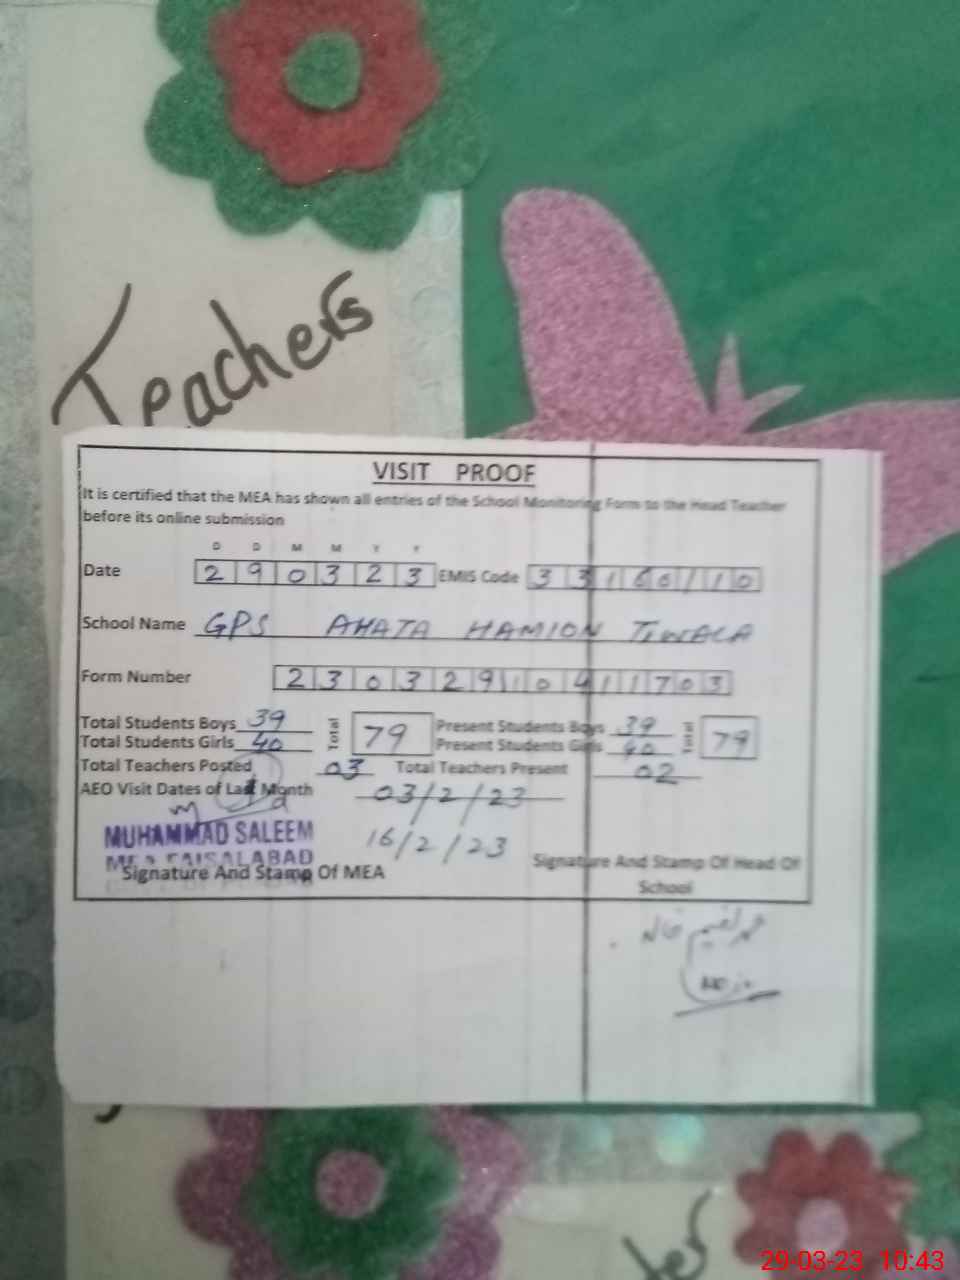 Teachers
VISIT PROOF
It is certified that the MEA has shown all entries of the School Monitoring Form to the Head Teacher
before its online submission
D D M M Y Y
Date 290323 EMIS Code 33160110
School Name GPS AHATA HAMION TIWALA
Form Number 23032910411703
Total Students Boys 39 Total 79 Present Students Boys 39 Total 79
Total Students Girls 40 Present Students Girls 40
Total Teachers Posted 03 Total Teachers Present 02
AEO Visit Dates of Last Month 03/2/23
16/2/23
MUHAMMAD SALEEM
MEA FAISALABAD
Signature And Stamp Of MEA
Signature And Stamp Of Head Of
School
29-03-23 10:43